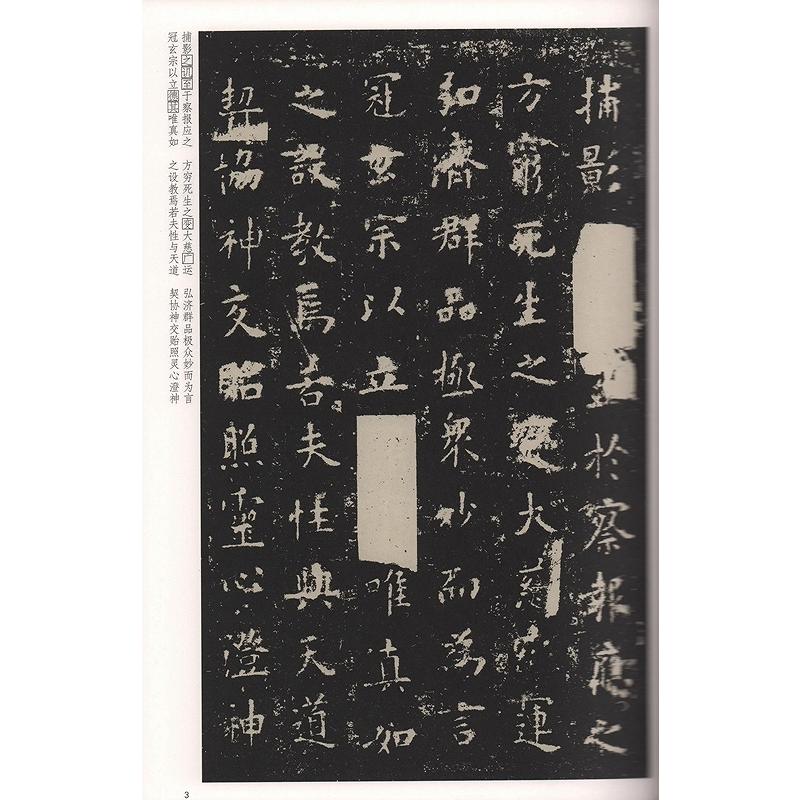 捕影至於察報應之
方窮死生之變大慈廣運
弘濟群品極衆妙而為言
冠玄宗以立唯真如
之設教焉若夫性與天道
契協神交貽照靈心澄神
捕影之训至于察报应之 方穷死生之变大慈广运 弘济群品极众妙而为言
冠玄宗以立德其唯真如 之设教焉若夫性与天道 契协神交贻照灵心澄神
3